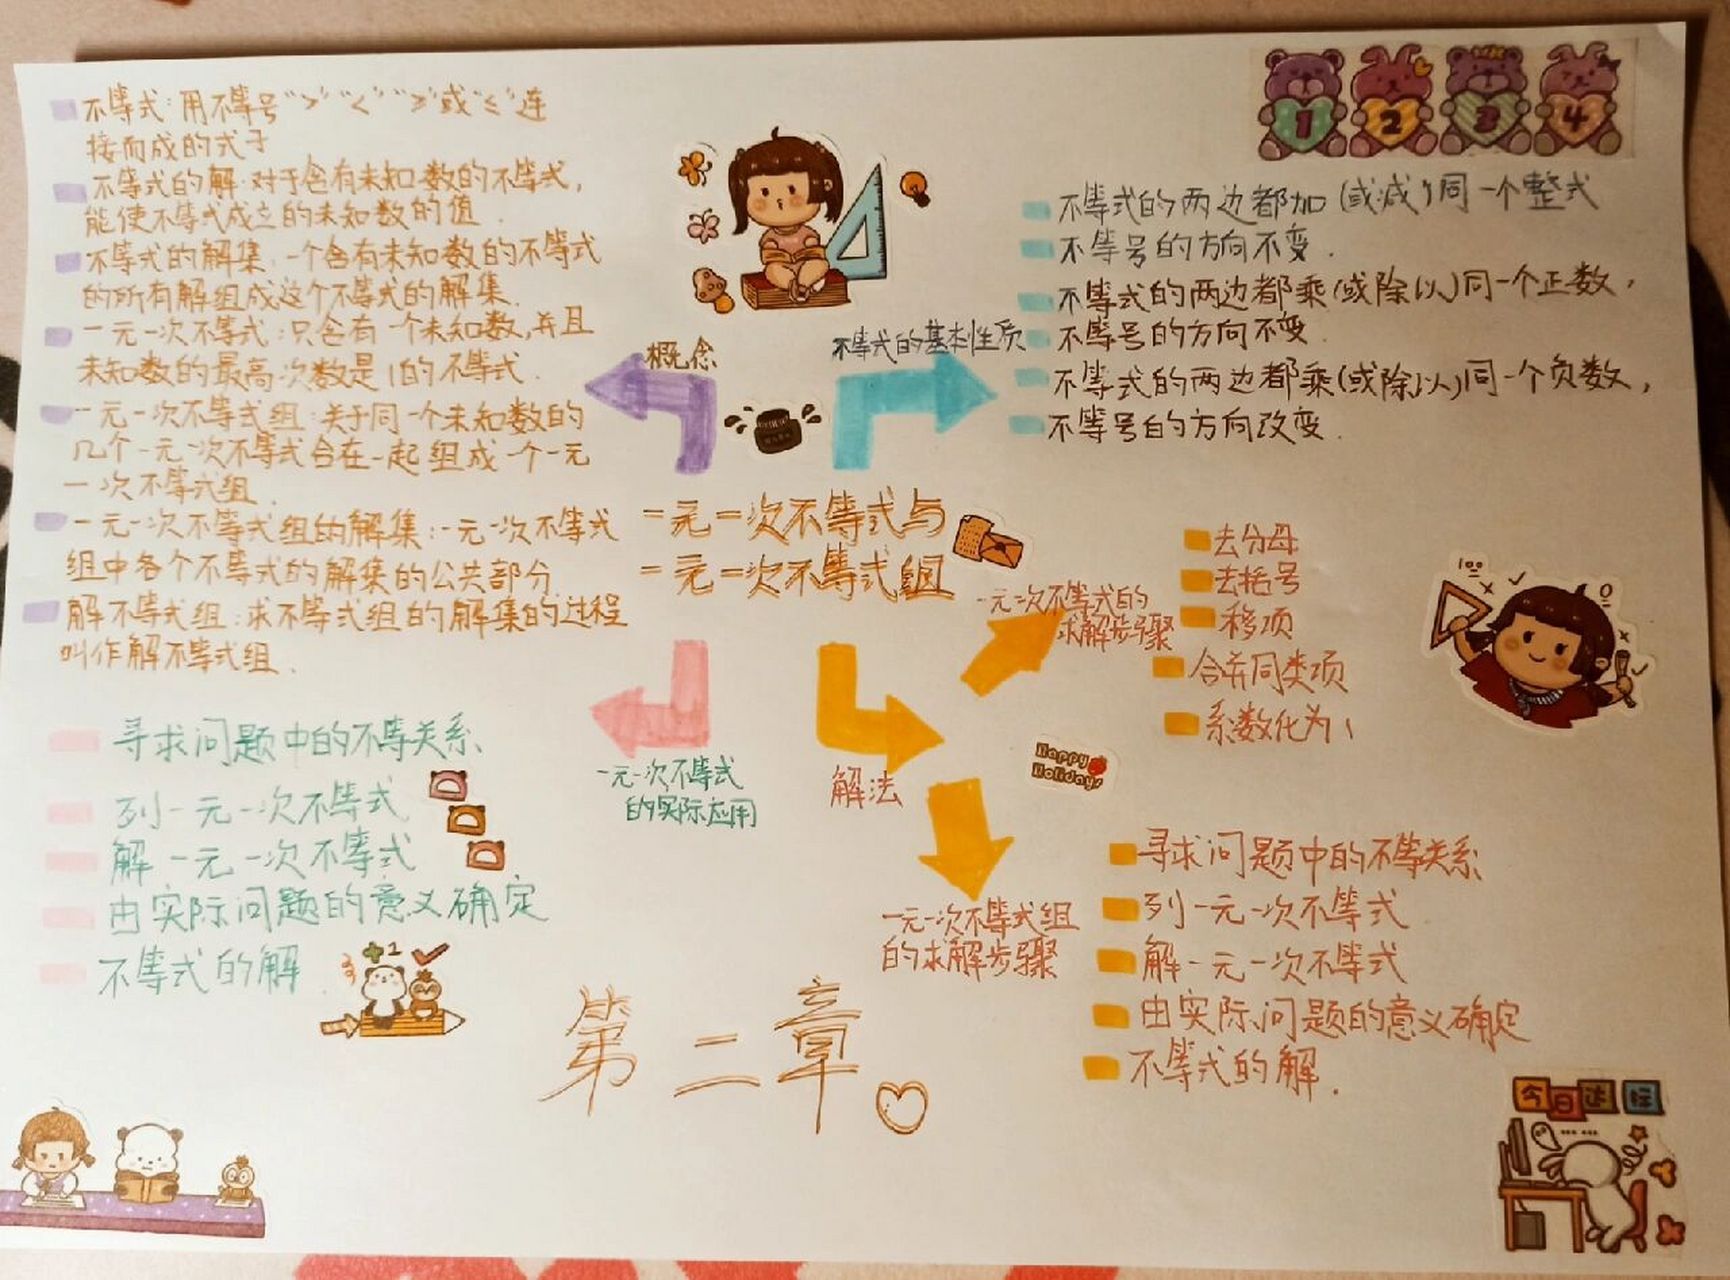 不等式：用不等号“>”“<”“≥”或“≤”连
接而成的式子
不等式的解：对于含有未知数的不等式，
能使不等式成立的未知数的值．
不等式的解集：一个含有未知数的不等式
的所有解组成这个不等式的解集．
一元一次不等式：只含有一个未知数，并且
未知数的最高次数是1的不等式．
一元一次不等式组：关于同一个未知数的
几个一元一次不等式合在一起组成一个一元
一次不等式组．
一元一次不等式组的解集：一元一次不等式
组中各个不等式的解集的公共部分．
解不等式组：求不等式组的解集的过程
叫作解不等式组．
概念
不等式的基本性质
不等式的两边都加（或减）同一个整式
不等号的方向不变．
不等式的两边都乘（或除以）同一个正数，
不等号的方向不变．
不等式的两边都乘（或除以）同一个负数，
不等号的方向改变．
1 2 3 4
一元一次不等式与
一元一次不等式组
一元一次不等式的
求解步骤
去分母
去括号
移项
合并同类项
系数化为1
100
寻求问题中的不等关系
列一元一次不等式
解一元一次不等式
由实际问题的意义确定
不等式的解．
一元一次不等式
的实际应用
解法
Happy
Holidays
一元一次不等式组
的求解步骤
寻求问题中的不等关系
列一元一次不等式
解一元一次不等式
由实际问题的意义确定
不等式的解．
第二章